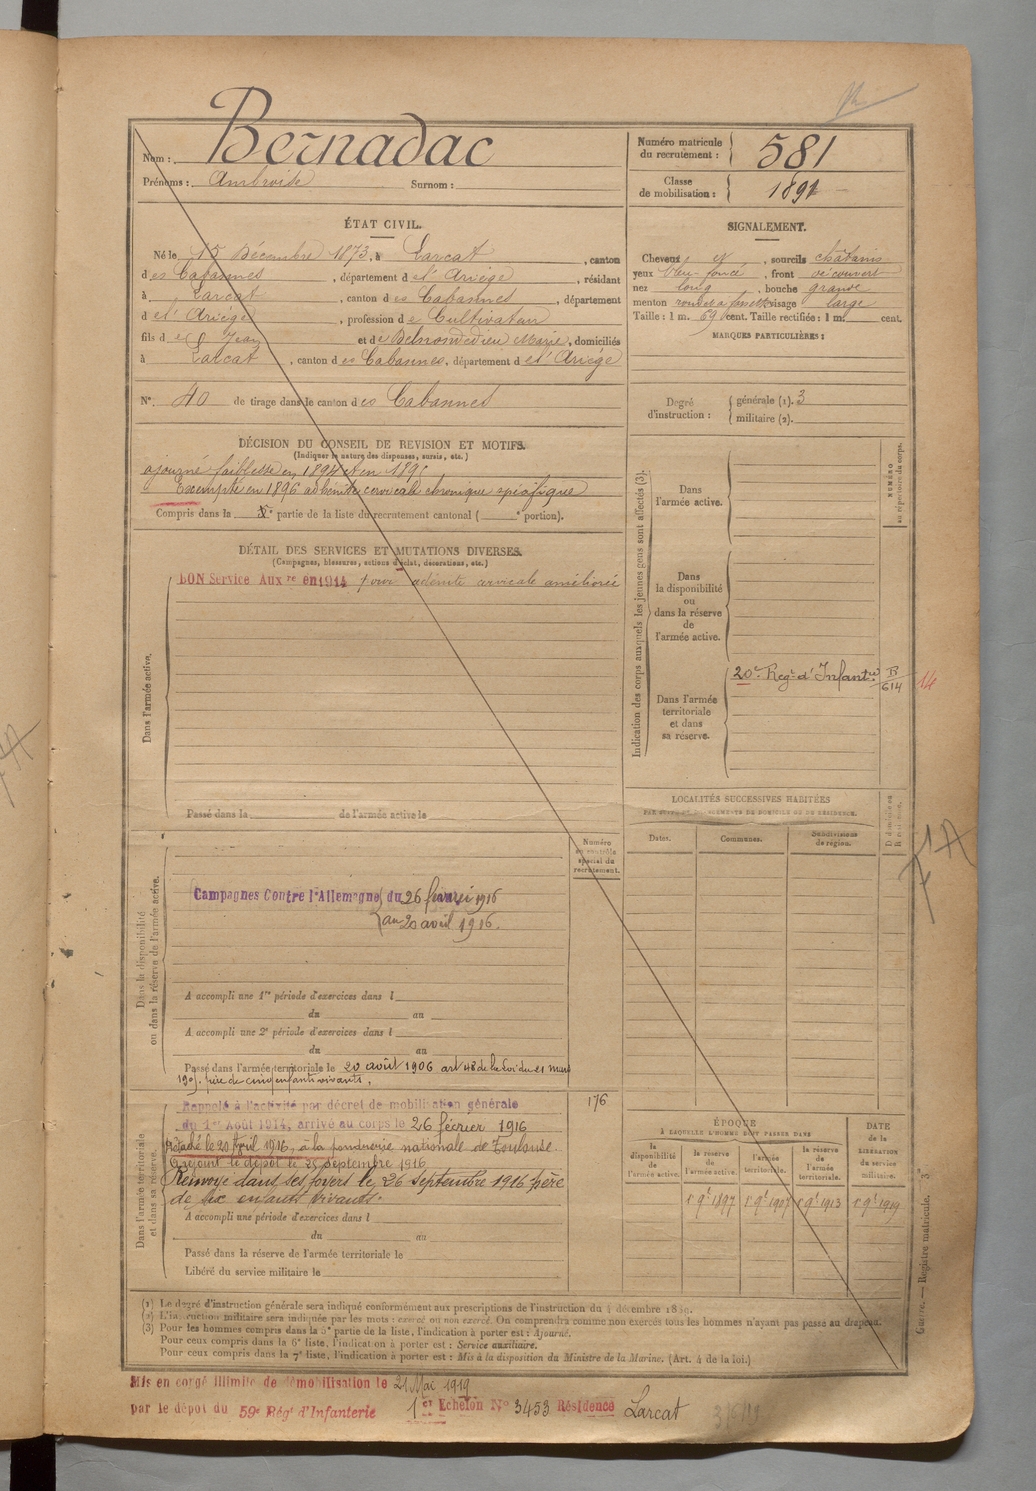 Nom : Bernadac
Prénoms : Ambroise Surnom :
Numéro matricule du recrutement : 581
Classe de mobilisation : 1891
ÉTAT CIVIL.
Né le 15 Décembre 1873, à Larcat, canton
d es Cabannes, département d e l'Ariège, résidant
à Larcat, canton d es Cabannes, département
d e l'Ariège, profession d e Cultivateur
fils d e Jean et d e Marie, domiciliés
à Larcat, canton d es Cabannes, département d e l'Ariège
N°. 40 de tirage dans le canton d es Cabannes
SIGNALEMENT.
Cheveux et sourcils châtains
yeux bleu foncé, front découvert
nez long, bouche grande
menton rond visage large
Taille : 1 m. 69 cent. Taille rectifiée : 1 m. cent.
MARQUES PARTICULIÈRES :
Degré d'instruction : générale (1). 3
militaire (2).
DÉCISION DU CONSEIL DE REVISION ET MOTIFS.
(Indiquer la nature des dispenses, sursis, etc.)
ajourné faiblesse en 1894 et en 1895
Exempté en 1896 adénite cervicale chronique spécifique
Compris dans la e partie de la liste du recrutement cantonal ( e portion).
DÉTAIL DES SERVICES ET MUTATIONS DIVERSES.
(Campagnes, blessures, actions d'éclat, décorations, etc.)
BON Service Aux re en 1914 pour adénite cervicale améliorée
Dans l'armée active.
Passé dans la de l'armée active le
Indication des corps auxquels les jeunes gens sont affectés (3).
NUMÉRO au répertoire du corps.
Dans l'armée active.
Dans la disponibilité ou dans la réserve de l'armée active.
Dans l'armée territoriale et dans sa réserve.
20e Regt d'Infantrie R/614 14
LOCALITÉS SUCCESSIVES HABITÉES
PAR SUITE DE CHANGEMENTS DE DOMICILE OU DE RÉSIDENCE.
Dates. Communes. Subdivisions de région.
Numéro au contrôle spécial du recrutement.
Dans la disponibilité ou dans la réserve de l'armée active.
Campagnes Contre l'Allemagne du 26 février 1916
au 20 avril 1916.
A accompli une 1re période d'exercices dans l
du au
A accompli une 2e période d'exercices dans l
du au
Passé dans l'armée territoriale le 20 août 1906 art 48 de la loi du 21 mars
1905. père de cinq enfants vivants.
Dans l'armée territoriale et dans sa réserve.
Rappelé à l'activité par décret de mobilisation générale
du 1er Août 1914, arrivé au corps le 26 février 1916
Détaché le 20 Avril 1916, à la poudrerie nationale de Toulouse.
A rejoint le dépôt le 25 septembre 1916
Renvoyé dans ses foyers le 26 septembre 1916 père
de six enfants vivants.
176
A accompli une période d'exercices dans l
du au
Passé dans la réserve de l'armée territoriale le
Libéré du service militaire le
ÉPOQUE
À LAQUELLE L'HOMME DOIT PASSER DANS
la disponibilité de l'armée active.
la réserve de l'armée active.
l'armée territoriale.
la réserve de l'armée territoriale.
DATE de la LIBÉRATION du service militaire.
1er 9bre 1897 1er 9bre 1907 1er 9bre 1913 1er 9bre 1919
(1) Le degré d'instruction générale sera indiqué conformément aux prescriptions de l'instruction du 4 décembre 1889.
(2) L'instruction militaire sera indiquée par les mots : exercé ou non exercé. On comprendra comme non exercés tous les hommes n'ayant pas passé au drapeau.
(3) Pour les hommes compris dans la 5e partie de la liste, l'indication à porter est : Ajourné.
Pour ceux compris dans la 6e liste, l'indication à porter est : Service auxiliaire.
Pour ceux compris dans la 7e liste, l'indication à porter est : Mis à la disposition du Ministre de la Marine. (Art. 4 de la loi.)
Guerre. — Registre matricule.
Mis en congé illimité de démobilisation le 21 Mai 1919
par le dépôt du 59e Régt d'Infanterie 1er Echelon N° 3453 Résidence Larcat